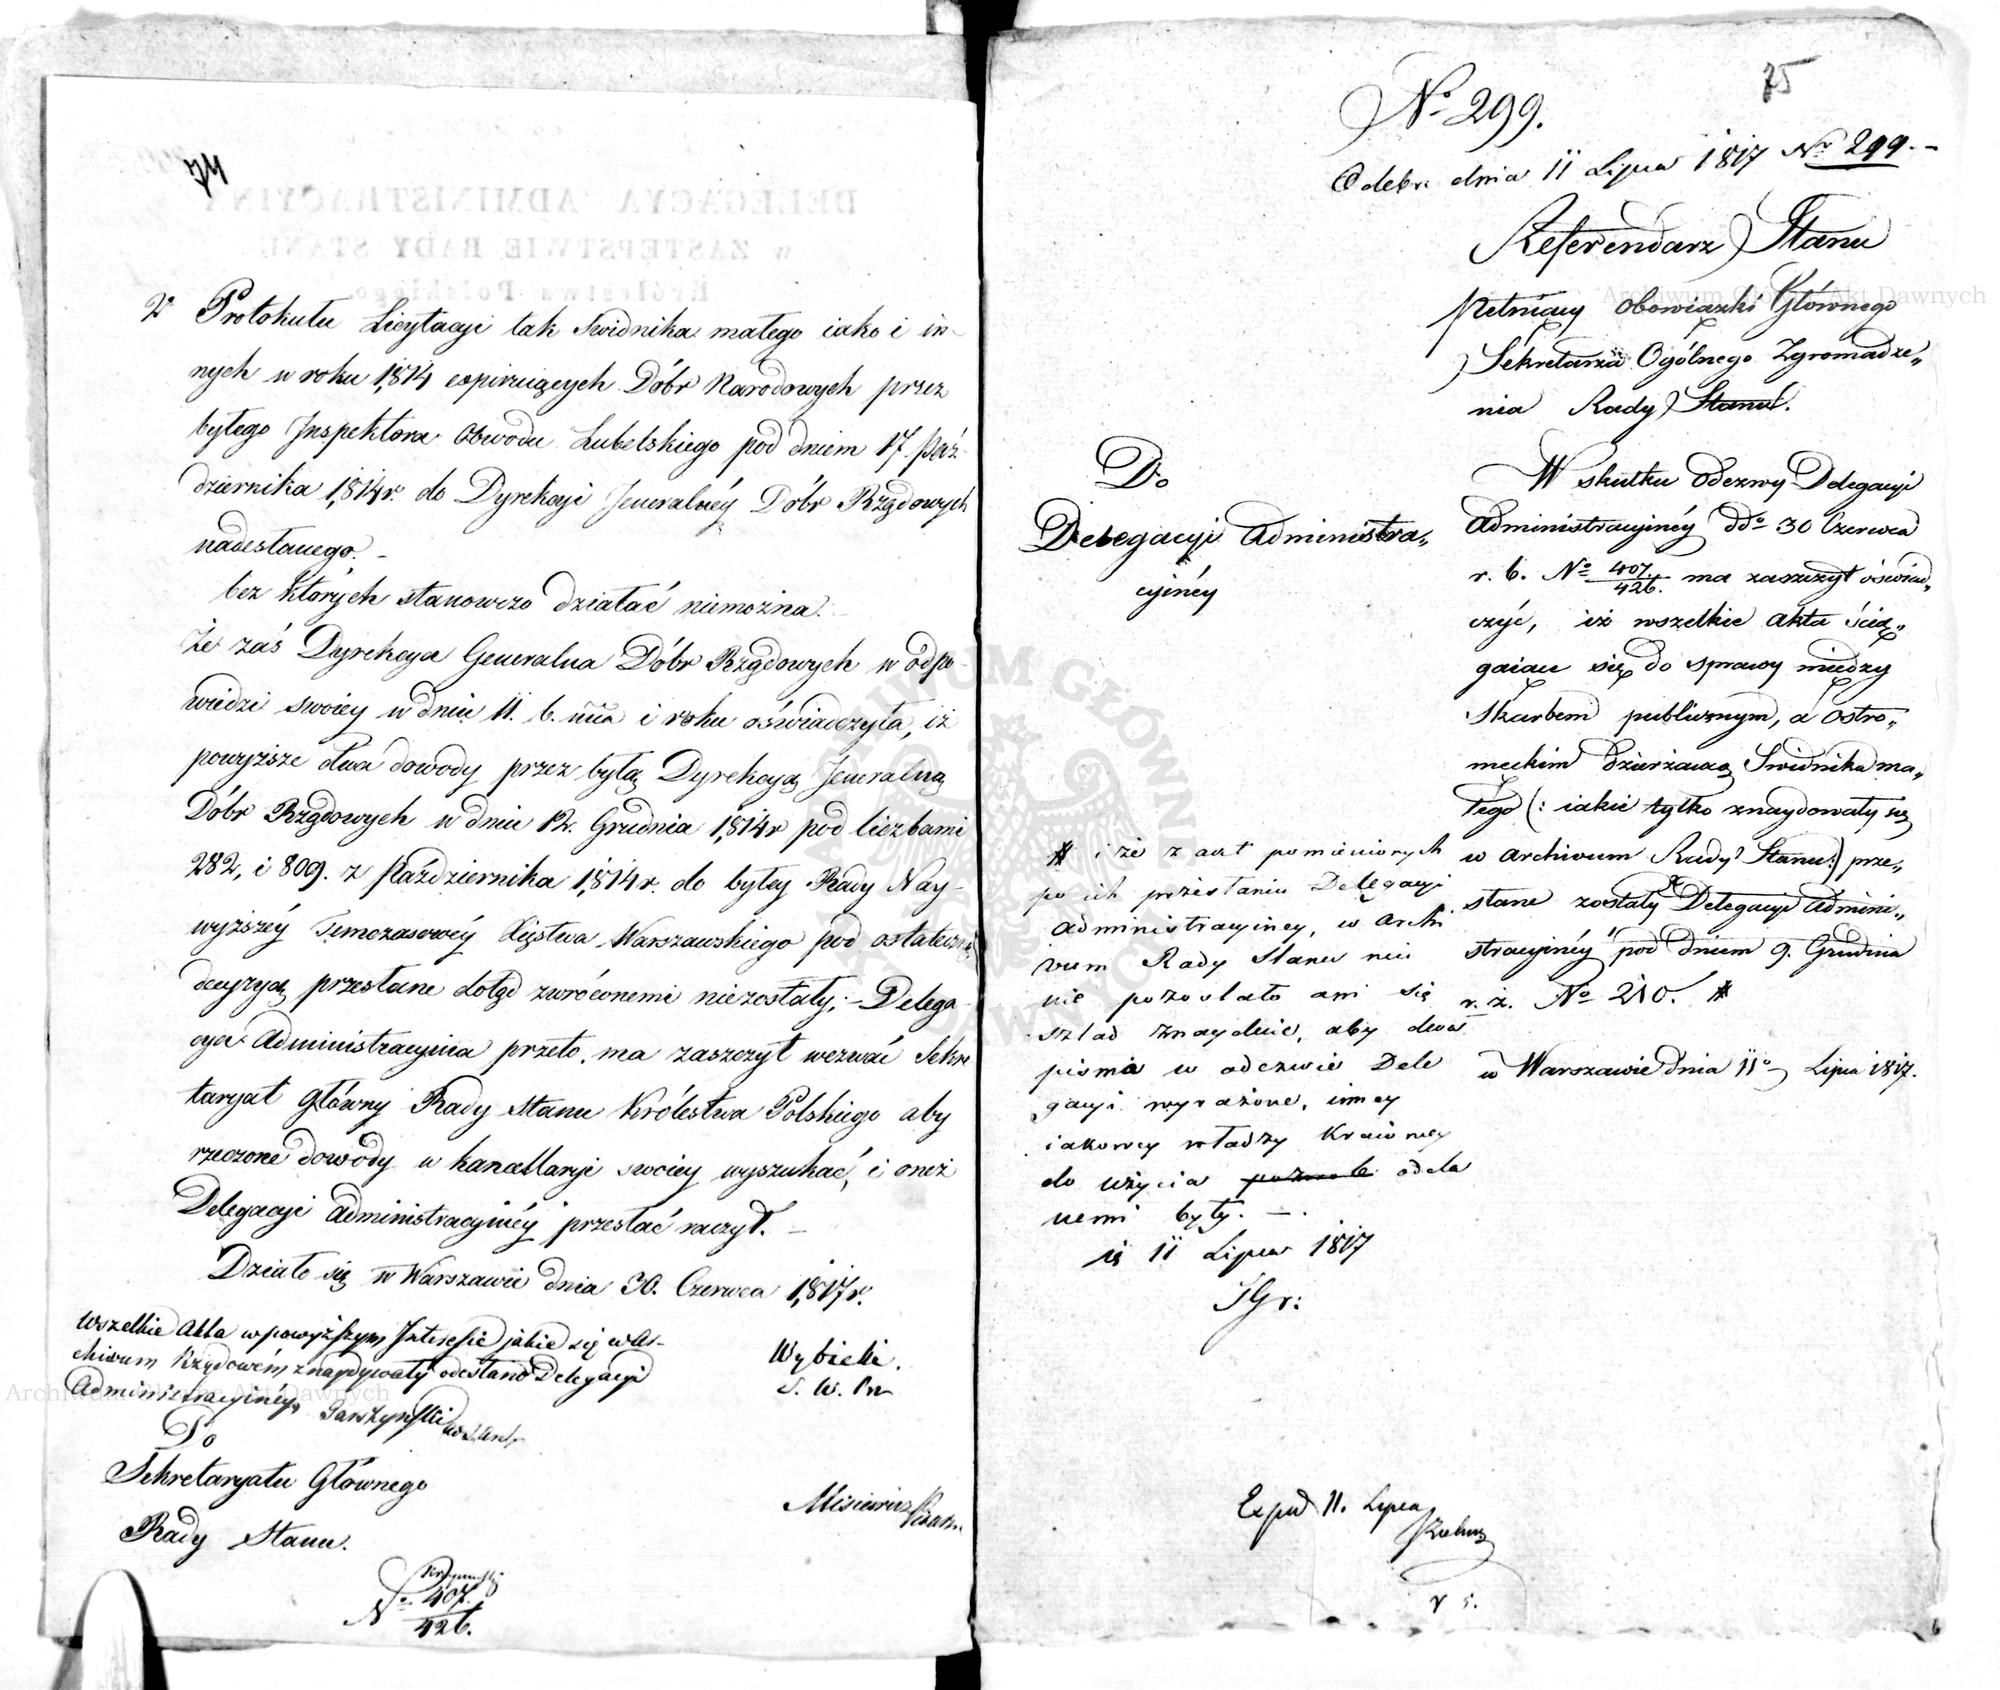 74
2° Protokułu Licytacyi tak Swidnika małego iako i in-
nych w roku 1814 expiruiących Dóbr Narodowych przez
byłego Inspektora Obwodu Lubelskiego pod dniem 17. Paź-
dziernika 1814r. do Dyrekcyi Jeneralnéy Dóbr Rządowych
nadesłanego. –
bez których stanowczo działać niemożna. –
Że zaś Dyrekcya Generalna Dóbr Rządowych w odpo-
wiedzi swoiey w dniu 11. b. mca i roku oświadczyła, iż
powyższe dwa dowody przez byłą Dyrekcyą Jeneralną
Dóbr Rządowych w dniu 12. Grudnia 1814r pod liczbami
282, i 809. z Października 1814r. do byłey Rady Nay-
wyższéy Tymczasowéy Xięstwa Warszawskiego pod ostateczną
decyzyą przesłane dotąd zwróconemi niezostały; – Delega-
cya Administracyina przeto, ma zaszczyt wezwać Sekre
taryat Główny Rady Stanu Królestwa Polskiego aby
rzeczone dowody w kancellaryi swoiey wyszukać, i oneż
Delegacyi Administracyinéy przesłać raczył. –
Działo się w Warszawie dnia 30. Czerwca 1817r.
Wszelkie Akta w powyższym Interesie jakie się w Ar-
chiwum Rządowém znaydywały odesłano Delegacyi
Administracyinéy
Wybicki.
S. W. Pr
Do
Sekretaryatu Głównego
Rady Stanu.
N° 407.
426.
75
N° 299.
Odebr. dnia 11 Lipca 1817 Nr 299. –
Referendarz Stanu
pełniący Obowiązki Głównego
Sekretarza Ogólnego Zgromadze„
nia Rady Stanu.
Do
Delegacyi Administra„
cyinéy
W skutku Odezwy Delegacyi
Administracyinéy ddo 30 Czerwca
r. b. N° 407./426. ma zaszczyt oświad„
czyć, iż wszelkie Akta ścią„
gaiące się do sprawy między
Skarbem publicznym, a Ostro„
meckim Dzierżawcą Swidnika ma„
łego (: iakie tylko znaydowały się
w Archivum Rady Stanu :) prze„
słane zostały Delegacyi Admini„
stracyinéy pod dniem 9. Grudnia
r. z. N° 210. #
w Warszawie dnia 11° Lipca 1817.
# i że z akt pomienionych
po ich przesłaniu Delegacyi
Administracyiney, w Archi
vum Rady Stanu nic
nie pozostało ani się
szlad znayduie, aby dwa
pisma w odezwie Dele
gacyi wyrażone, inney
iakowey władzy Kraiowey
do użycia odda
nemi były. –
11 Lipca 1817
Exped 11. Lipca